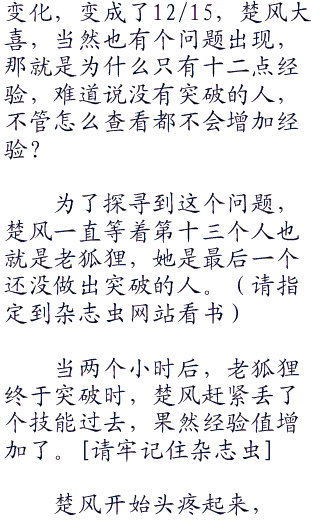 变化，变成了12/15，楚风大
喜，当然也有个问题出现，
那就是为什么只有十二点经
验，难道说没有突破的人，
不管怎么查看都不会增加经
验？
为了探寻到这个问题，
楚风一直等着第十三个人也
就是老狐狸，她是最后一个
还没做出突破的人。（请指
定到杂志虫网站看书）
当两个小时后，老狐狸
终于突破时，楚风赶紧丢了
个技能过去，果然经验值增
加了。[请牢记住杂志虫]
楚风开始头疼起来，